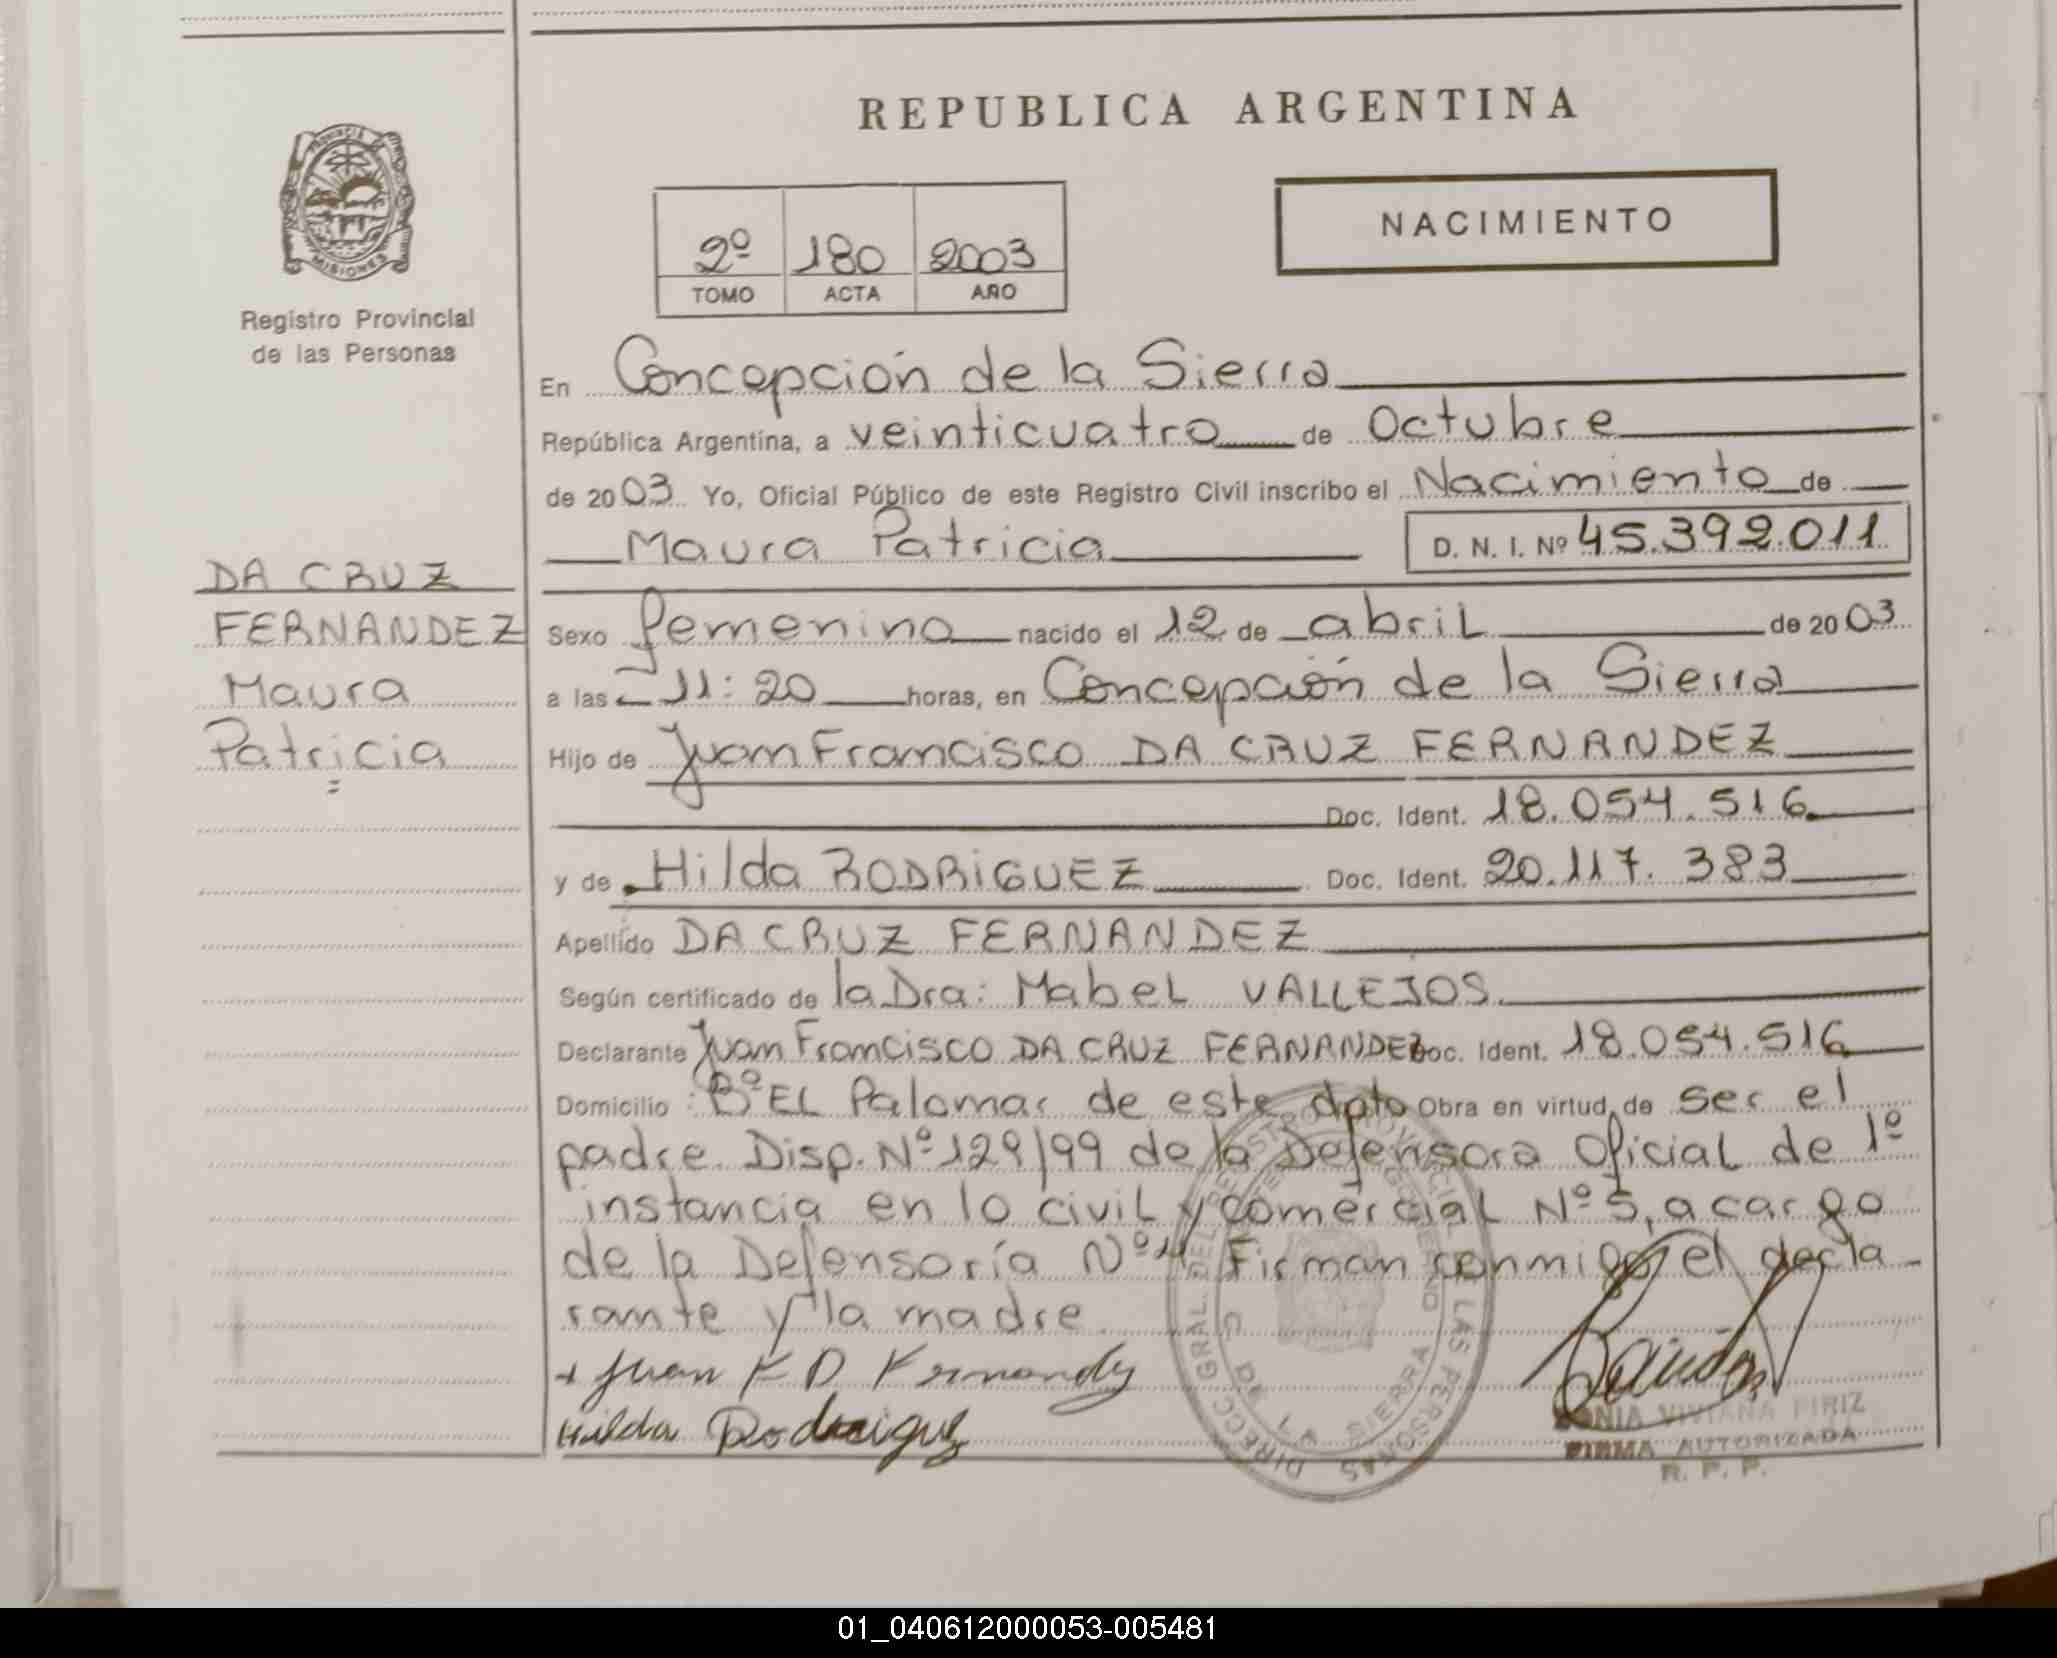 REPUBLICA ARGENTINA
PROVINCIA
MISIONES
Registro Provincial
de las Personas
2º 180 2003
TOMO ACTA AÑO
NACIMIENTO
En Concepción de la Sierra
República Argentina, a veinticuatro de Octubre
de 2003 Yo, Oficial Público de este Registro Civil inscribo el Nacimiento de
Maura Patricia D. N. I. Nº 45.392.011
DA CRUZ
FERNANDEZ
Maura
Patricia
Sexo femenino nacido el 12 de abril de 2003
a las 11:20 horas, en Concepción de la Sierra
Hijo de Juan Francisco DA CRUZ FERNANDEZ
Doc. Ident. 18.054.516
y de Hilda RODRIGUEZ Doc. Ident. 20.117.383
Apellido DA CRUZ FERNANDEZ
Según certificado de la Dra: Mabel VALLEJOS
Declarante Juan Francisco DA CRUZ FERNANDEZ Doc. Ident. 18.054.516
Domicilio: Bº EL Palomar de este dpto Obra en virtud de ser el
padre. Disp. Nº 129/99 de la Defensora Oficial de 1º
instancia en lo civil y comercial Nº 5, a cargo
de la Defensoría Nº 4 Firman conmigo el decla-
rante y la madre.
+ Juan F D Fernandez
Hilda Rodriguez
DIRECC GRAL. DEL REGISTRO PROVINCIAL DE LAS PERSONAS
DE LA SIERRA
SONIA VIVIANA PIRIZ
FIRMA AUTORIZADA
R. P. P.
01_040612000053-005481